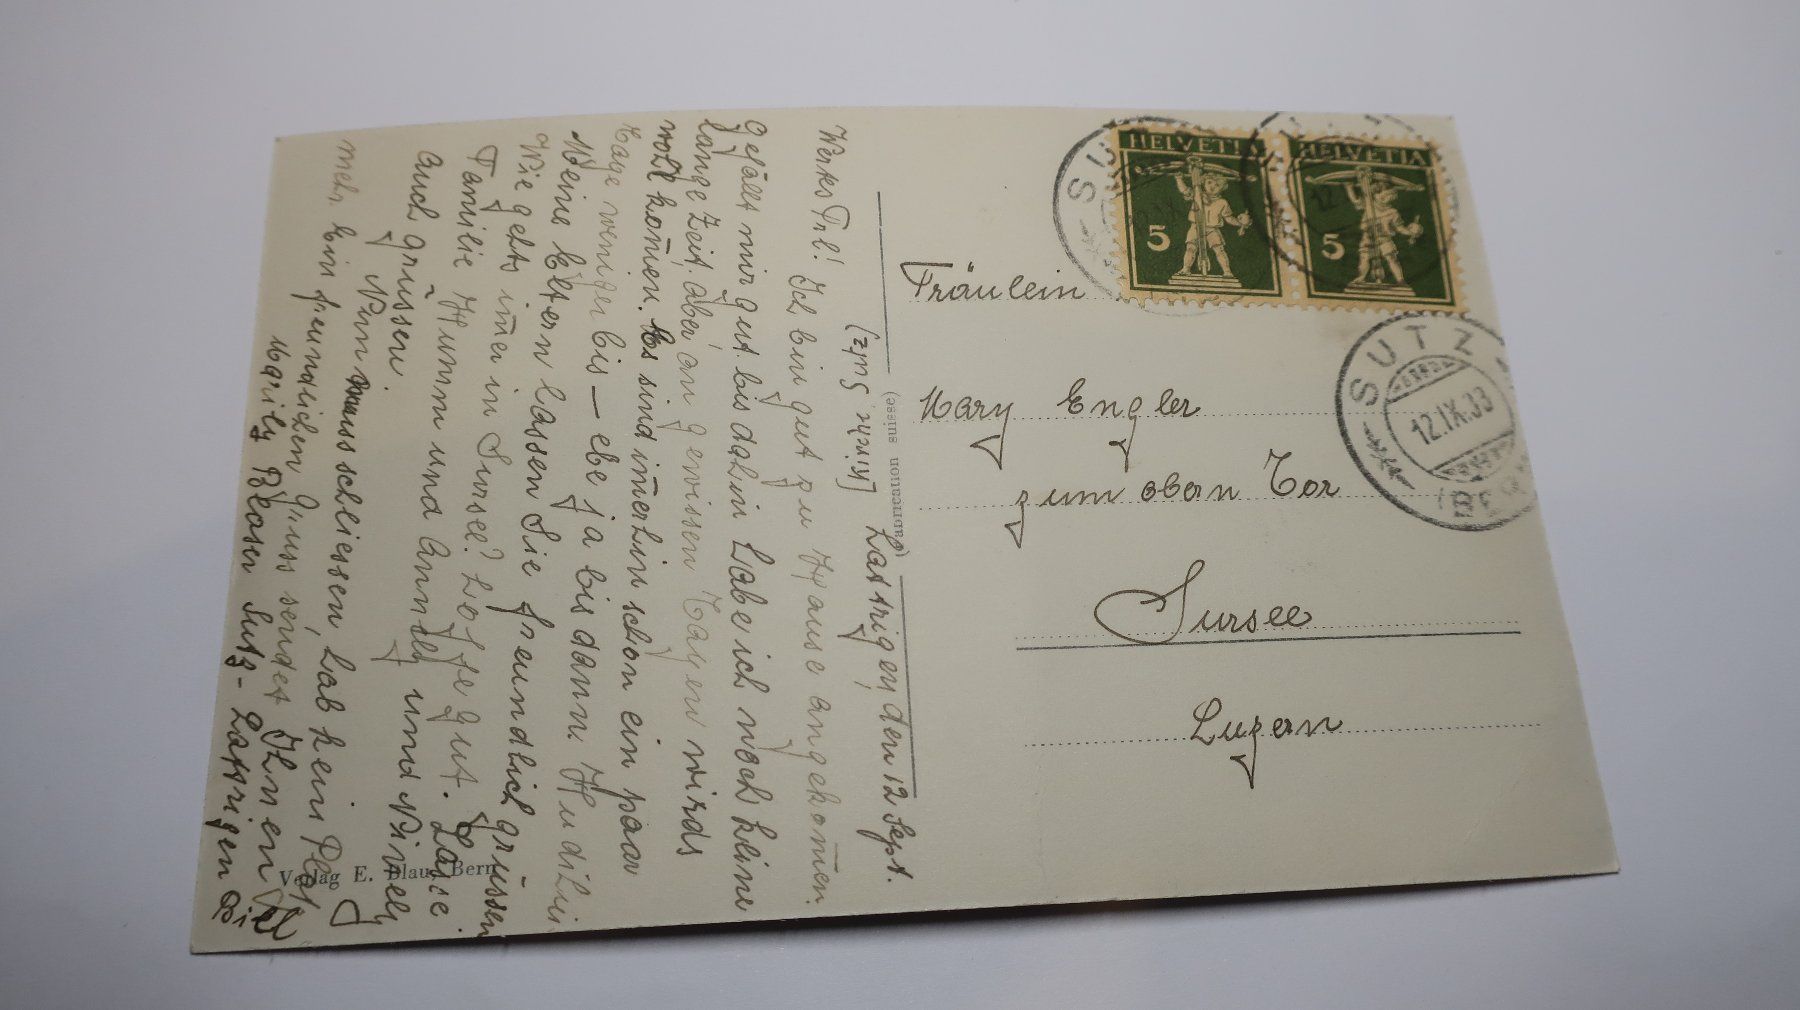 [Kirche Sutz] Lattrigen, den 12 Sept.
Wertes Frl! Ich bin gut zu Hause angekom̄en.
Gefällt mir gut, bis dahin habe ich noch keine
lange Zeit, aber an gewissen Tagen wirds
wohl kom̄en. Es sind im̄erhin schon ein paar
Tage weniger bis – ebe ja bis dann.
Meine Eltern lassen Sie freundlich grüssen
Wie gehts im̄er in Sursee? Hoffe gut. Lasse
Familie Hunn und Annely und Ninely
auch grüssen.
Nun muss schliessen, hab kein Platz
mehr. Ein freundlichen Gruss sendet Ihnen
Marily Blaser Sutz-Lattrigen
Verlag E. Blau, Bern
HELVETIA
5
HELVETIA
5
SUTZ
12.IX.33
(BERN)
Fräulein
Mary Engler
zum obern Tor
Sursee
Luzern